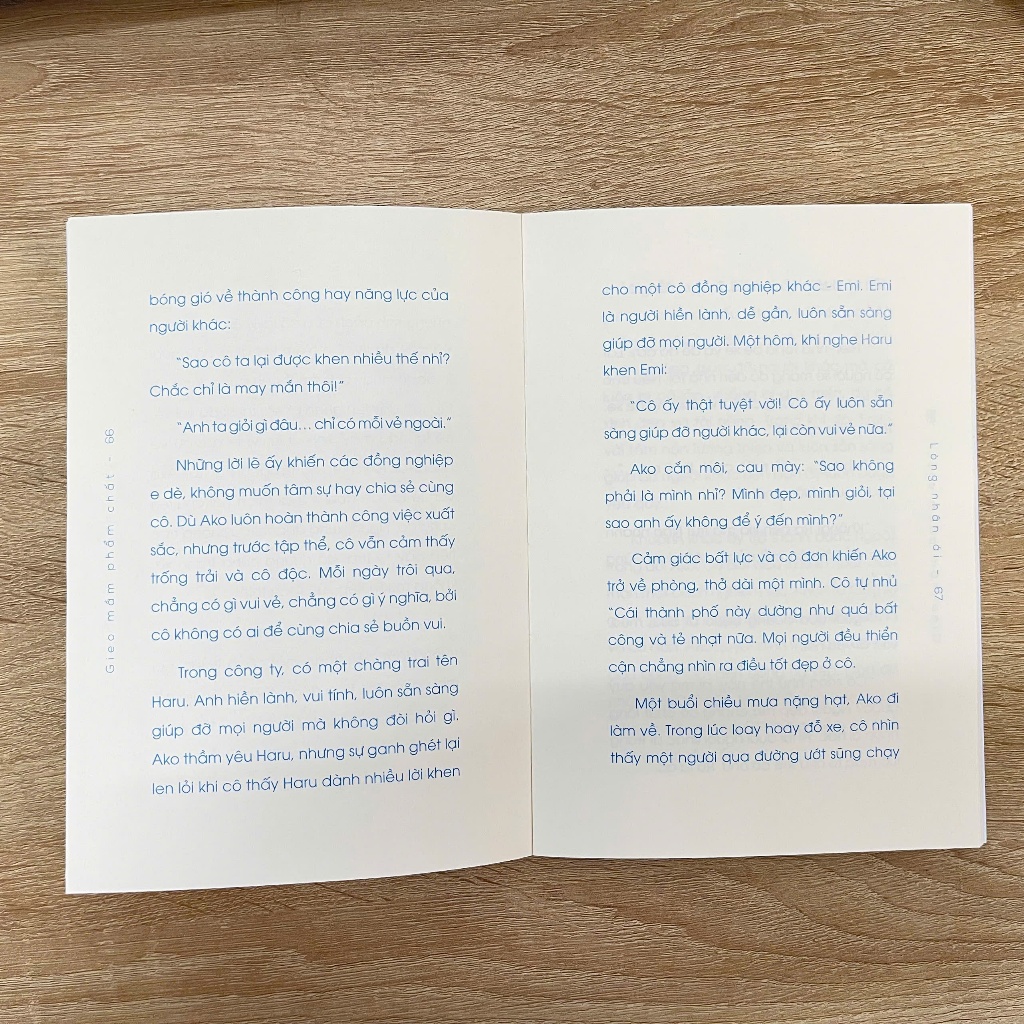 bóng gió về thành công hay năng lực của
người khác:
“Sao cô ta lại được khen nhiều thế nhỉ?
Chắc chỉ là may mắn thôi!”
“Anh ta giỏi gì đâu... chỉ có mỗi vẻ ngoài.”
Những lời lẽ ấy khiến các đồng nghiệp
e dè, không muốn tâm sự hay chia sẻ cùng
cô. Dù Ako luôn hoàn thành công việc xuất
sắc, nhưng trước tập thể, cô vẫn cảm thấy
trống trải và cô độc. Mỗi ngày trôi qua,
chẳng có gì vui vẻ, chẳng có gì ý nghĩa, bởi
cô không có ai để cùng chia sẻ buồn vui.
Trong công ty, có một chàng trai tên
Haru. Anh hiền lành, vui tính, luôn sẵn sàng
giúp đỡ mọi người mà không đòi hỏi gì.
Ako thầm yêu Haru, nhưng sự ganh ghét lại
len lỏi khi cô thấy Haru dành nhiều lời khen
Gieo mầm phẩm chất - 66
cho một cô đồng nghiệp khác - Emi. Emi
là người hiền lành, dễ gần, luôn sẵn sàng
giúp đỡ mọi người. Một hôm, khi nghe Haru
khen Emi:
“Cô ấy thật tuyệt vời! Cô ấy luôn sẵn
sàng giúp đỡ người khác, lại còn vui vẻ nữa.”
Ako cắn môi, cau mày: “Sao không
phải là mình nhỉ? Mình đẹp, mình giỏi, tại
sao anh ấy không để ý đến mình?”
Cảm giác bất lực và cô đơn khiến Ako
trở về phòng, thở dài một mình. Cô tự nhủ
“Cái thành phố này dường như quá bất
công và tẻ nhạt nữa. Mọi người đều thiển
cận chẳng nhìn ra điều tốt đẹp ở cô.
Một buổi chiều mưa nặng hạt, Ako đi
làm về. Trong lúc loay hoay đỗ xe, cô nhìn
thấy một người qua đường ướt sũng chạy
Lòng nhân ái - 67